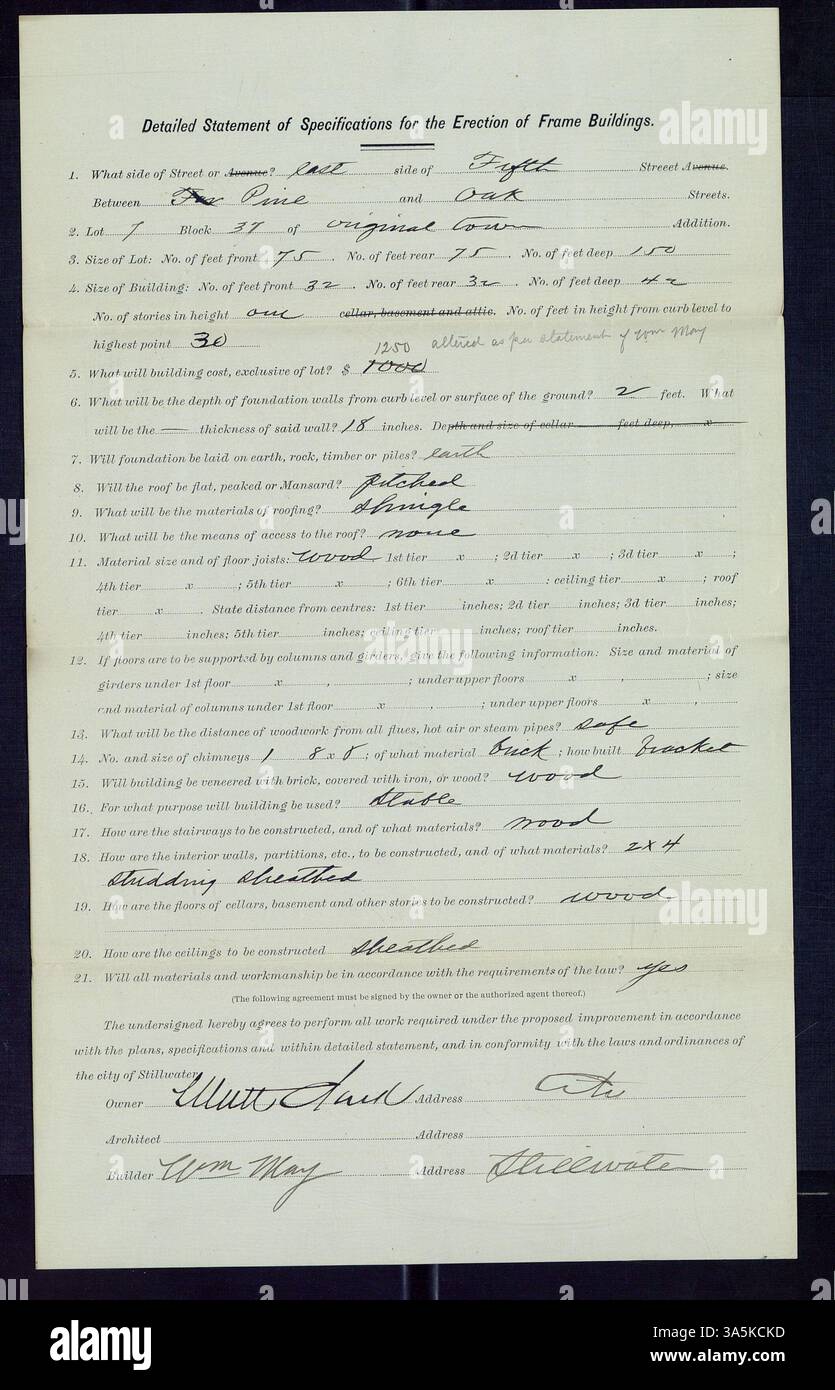 Detailed Statement of Specifications for the Erection of Frame Buildings.
1. What side of Street or Avenue? East side of Fifth Streeet Avenue.
Between Pine and Oak Streets.
2. Lot 7 Block 37 of original town Addition.
3. Size of Lot: No. of feet front 75 . No. of feet rear 75 . No. of feet deep 150
4. Size of Building: No. of feet front 32 . No. of feet rear 32 . No. of feet deep 42
No. of stories in height one cellar, basement and attic. No. of feet in height from curb level to
highest point 30
1250 altered as per statement of Wm May
5. What will building cost, exclusive of lot? $ 1000
6. What will be the depth of foundation walls from curb level or surface of the ground? 2 feet. What
will be the — thickness of said wall? 18 inches. Depth and size of cellar feet deep, x
7. Will foundation be laid on earth, rock, timber or piles? earth
8. Will the roof be flat, peaked or Mansard? pitched
9. What will be the materials of roofing? Shingle
10. What will be the means of access to the roof? none
11. Material size and of floor joists: wood 1st tier x ; 2d tier x ; 3d tier x ;
4th tier x ; 5th tier x ; 6th tier x : ceiling tier x ; roof
tier x . State distance from centres: 1st tier inches; 2d tier inches; 3d tier inches;
4th tier inches; 5th tier inches; ceiling tier inches; roof tier inches.
12. If floors are to be supported by columns and girders, give the following information: Size and material of
girders under 1st floor x , ; under upper floors x , ; size
and material of columns under 1st floor x , ; under upper floors x ,
13. What will be the distance of woodwork from all flues, hot air or steam pipes? safe
14. No. and size of chimneys 1 8 x 8 ; of what material brick ; how built bracket
15. Will building be veneered with brick, covered with iron, or wood? wood
16. For what purpose will building be used? Stable
17. How are the stairways to be constructed, and of what materials? wood
18. How are the interior walls, partitions, etc., to be constructed, and of what materials? 2x4
studding sheathed
19. How are the floors of cellars, basement and other stories to be constructed? wood
20. How are the ceilings to be constructed sheathed
21. Will all materials and workmanship be in accordance with the requirements of the law? yes
(The following agreement must be signed by the owner or the authorized agent thereof.)
The undersigned hereby agrees to perform all work required under the proposed improvement in accordance
with the plans, specifications and within detailed statement, and in conformity with the laws and ordinances of
the city of Stillwater.
Owner Address City
Architect Address
Builder Wm May Address Stillwater
alamy
Image ID: 3A5KCKD
www.alamy.com